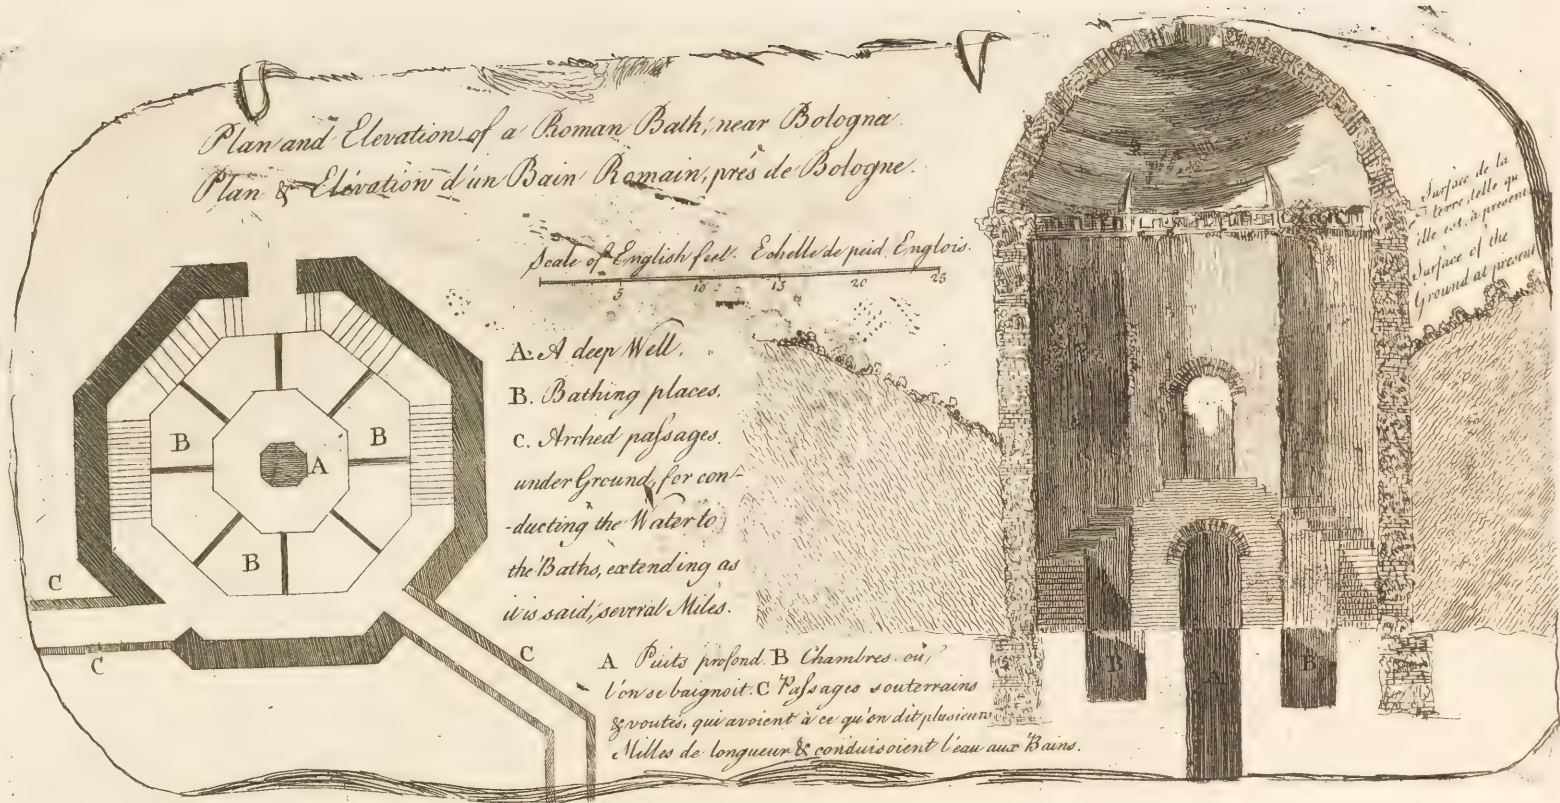 Plan and Elevation of a Roman Bath, near Bologna.
Plan & Elévation d'un Bain Romain, prés de Bologne.
Scale of English feet. Echelle de peid Englois.
5 10 15 20 25
A. A deep Well.
B. Bathing places.
C. Arched paſsages
under Ground, for con-
-ducting the Water to
the Baths, extending as
it is said, several Miles.
A Puits profond. B Chambres où,
l'on se baignoit. C Paſsages souterrains
& voutés, qui avoient à ce qu'on dit plusieurs
Milles de longueur & conduisoient l'eau aux Bains.
Surface de la
terre, telle qu
ille est, à present
Surface of the
Ground at present
B
B
A
B
C
C
C
B
B
A